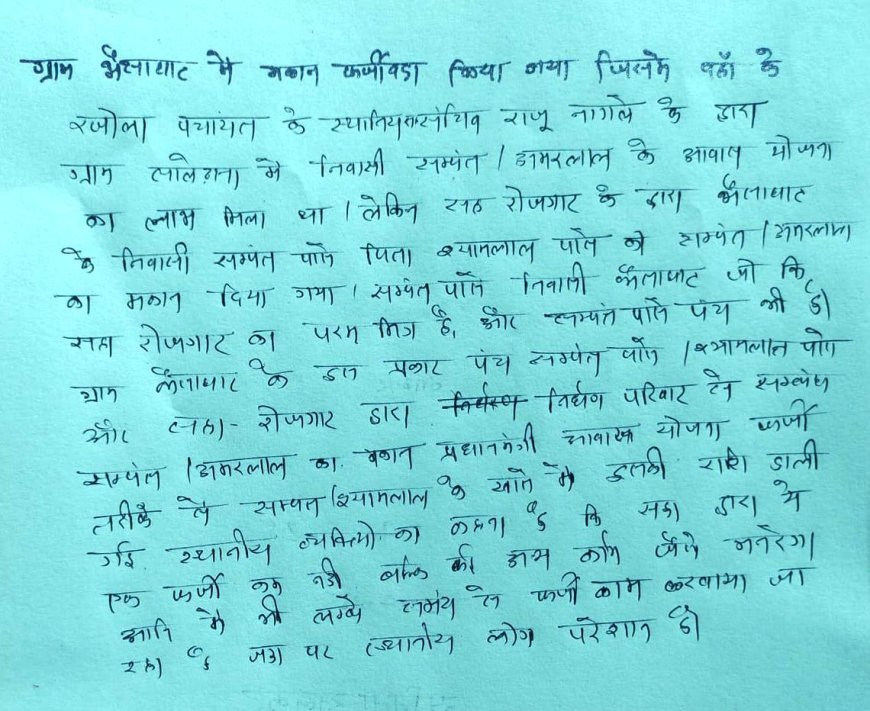 ग्राम भैसाघाट मे मकान फर्जीवडा किया गया जिसमे वहाँ के
रजोला पचांयत के स्थानिय सचिव राजू नागले के द्वारा
ग्राम सालेढाना मे निवासी सम्पंत / झमरलाल के आवास योजना
का लाभ मिला था । लेकिन सह रोजगार के द्वारा भैसाघाट
के निवासी सम्पंत पाने पिता श्यामलाल पाने को सम्पंत / झमरलाल
का मकान दिया गया । सम्पंत पाने निवासी भैसाघाट जो कि
सहा रोजगार का परम मित्र है, और सम्पंत पाने पंच भी है।
ग्राम भैसाघाट के इस प्रकार पंच सम्पंत पाने / श्यामलाल पाने
और सहा- रोजगार द्वारा निर्धण परिवार से सम्बंध
सम्पंत / झमरलाल का मकान प्रधानमंत्री आवास योजना फर्जी
तरीके से सम्पंत / श्यामलाल के खाते मे इसकी राशि डाली
गई स्थानीय व्यक्तियो का कहना है कि सहा द्वारा ये
एक फर्जी काम नही बल्कि और अन्य काम जैसे मनरेगा
आदि मे भी लम्बे समय से फर्जी काम करवाया जा
रहा है जहा पर स्थानीय लोग परेशान है।